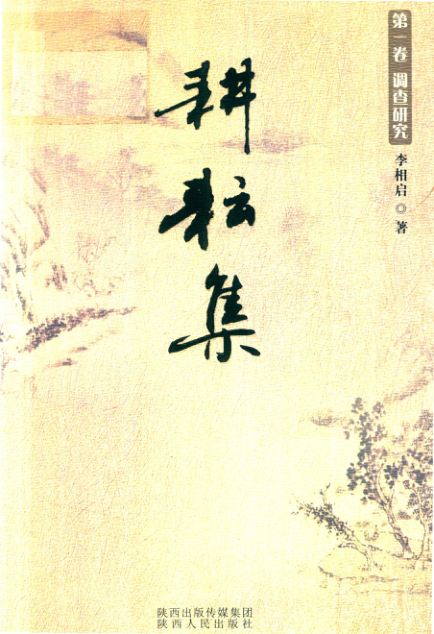 第一卷 调查研究
李相启◎著
耕耘集
陕西出版传媒集团
陕西人民出版社